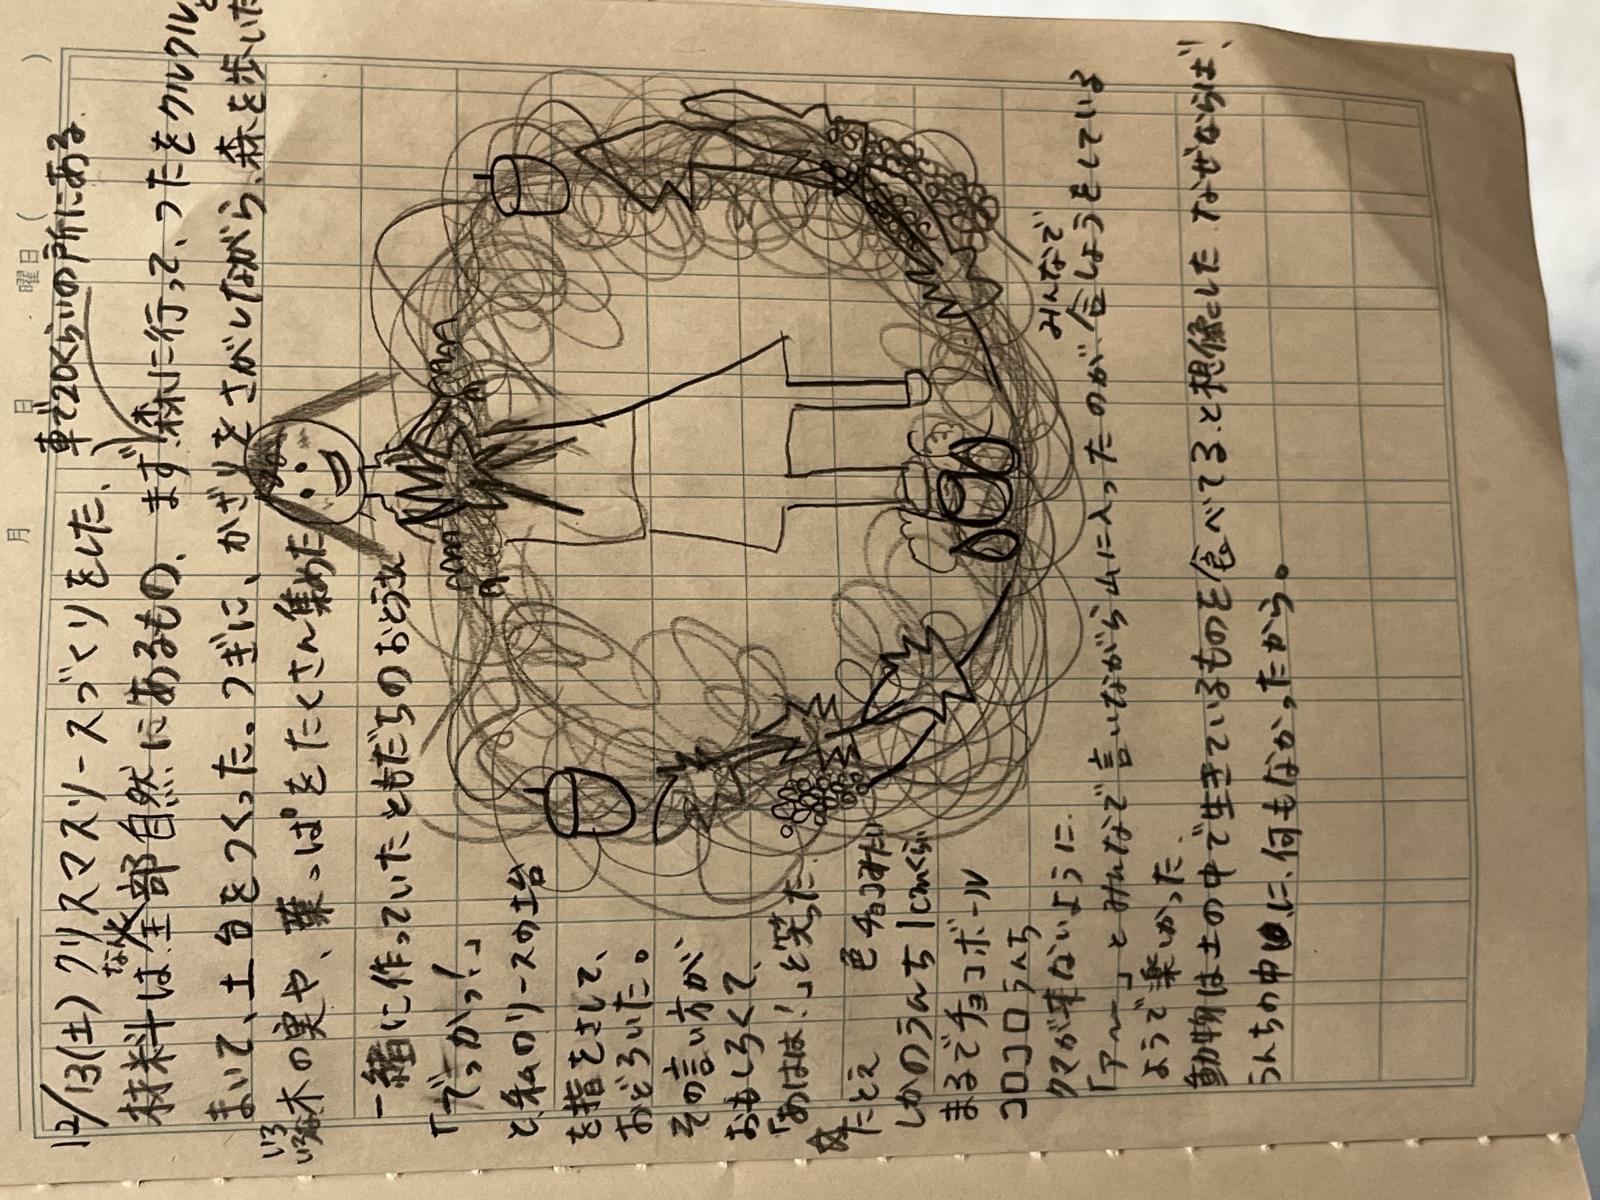 月 日 曜日 ( )
12/13(土) クリスマスリースづくりをした、
車で20くらいの所にある
材料は全部自然にあるもの、まず森に行って、つたをクルクルと
まいて、土台をつくった。つぎに、かざりをさがしながら、森を歩いた
いろいろな木の実や、葉っぱをたくさん集めた
一緒に作っていたともだちのおとうさん
「でっかっ!」
と、私のリースの土台
を指をさして、
おどろいた。
その言い方が、
おもしろくて、
「あはは!」と笑った
たとえ
色チョコみたい
しかのうんち1cmくらい
まるでチョコボール
コロコロうんち
クマが来ないように
みんなで
「アー〜」とみんなで言いながら山に入ったのが、合しょうをしている
ようで楽しかった
動物は土の中で生きているものを食べてると想像した なぜならば、
うんちの中に、何もなかったから。